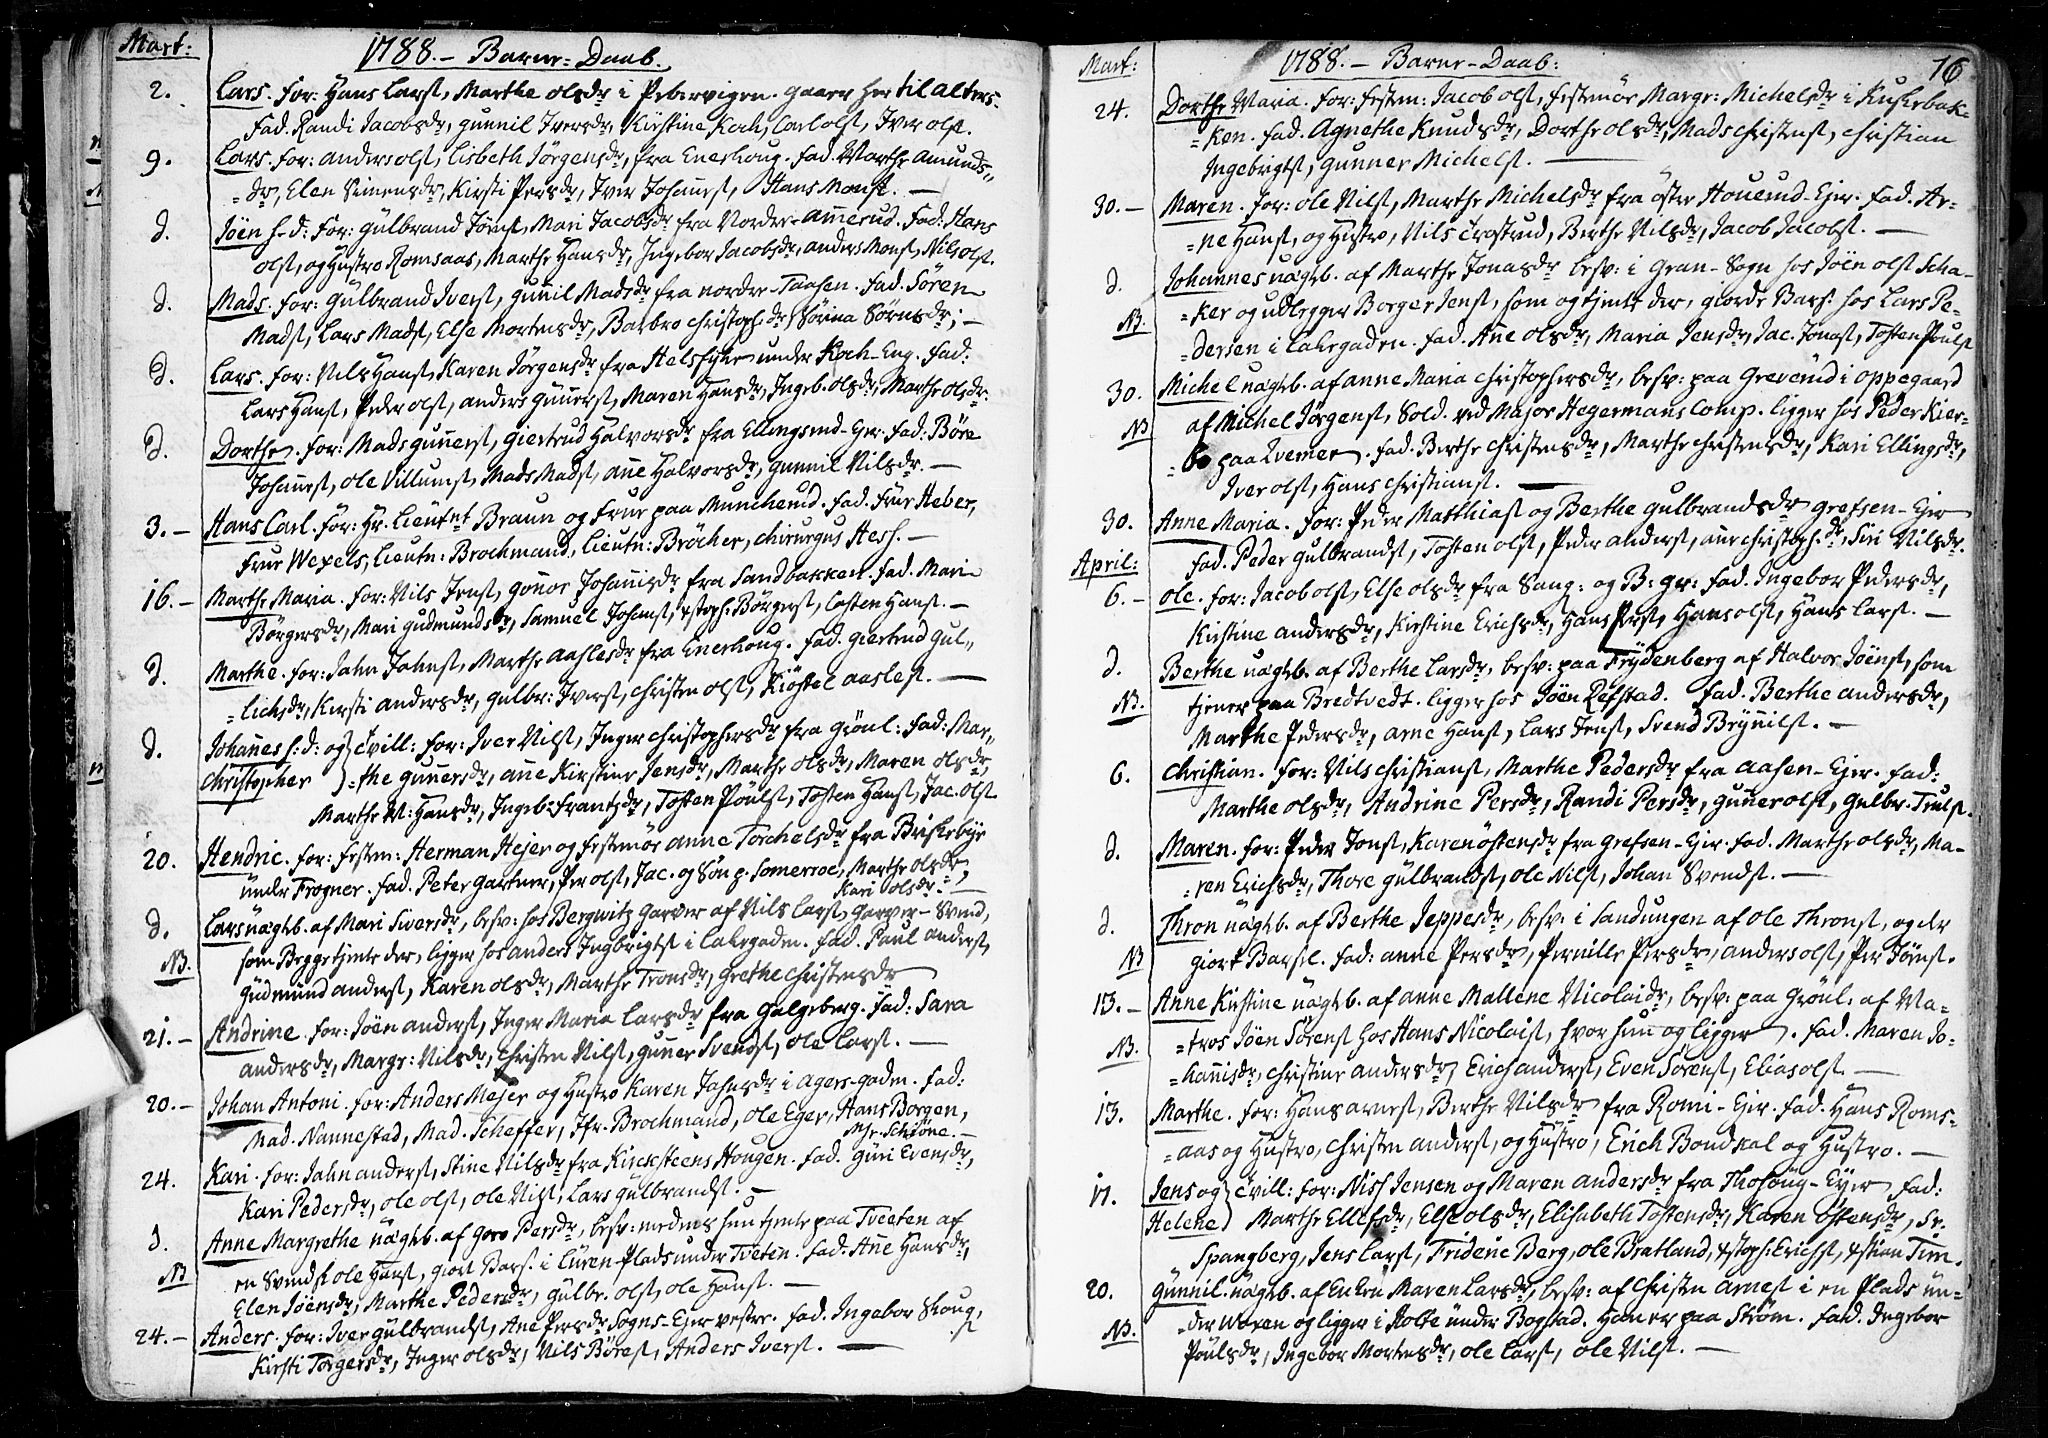 Mart: 1788. – Barne-Daab.
2. Lars. For: Hans Larsf, Marthe olsdr i Pebervigen. gaaer her til alters.
Fad. Randi Jacobsdr, gunnil Iversdr, Kirstine Koch, Carl olsf, Iver olsf.
9. Lars. For: anders olsf, Lisbeth Jörgensdr, fra Enerhoug. Fad. Marthe Amunds„
=dr, Elen Simensdr, Kirsti Persdr, Iver Johannesf, Hans Monsf. —
d. Jöen h-d: For: Gülbrand Jöensf, Mari Jacobsdr fra Nordre-Ammerud. Fad: Hans
olsf, og Hustro Romsaas, Marthe Hansdr, Ingebor Jacobsdr, anders Monsf, Nils olsf.
d. Mads. For: Gülbrand Iversf, gunnil Madsdr fra nordre-Taasen. Fad. Sören
Madsf, Lars Madsf, Else Mortensdr, Barbro Christoph.dr, Sörina Sörnsdr; —
d. Lars. For: Nils Hansf, Karen Jörgensdr fra Helsfyr under Koch-Eng. Fad:
Lars Hansf, Peder olsf, anders Gunersf, Maren Hansdr, Ingeb. olsdr, Marthe olsdr.
d. Dorthe. For: Mads gunersf, giertrud Halvorsdr fra Ellingsrud-Ejer. Fad: Böre
Johannesf, ole Villumsf, Mads Madsf, ane Halvorsdr, gunnil Nilsdr. —
3. – Hans Carl. For: Hr. Lieutnt Braun og Frue paa Munckerud. Fad. Frue Heber,
Frue Wexels, Lieutn: Brochmand, Lieutn: Bröcher, Chirurgus Hess. —
16. – Marthe Maria. For: Nils Jensf, gonor Johannisdr fra Sandbakken. Fad. Mari
Börgersdr, Mari Gudmundsdr, Samuel Johansf, xstoph: Börgersf, Casten Hansf. —
d. Marthe. For: Jahn Jahnsf, Marthe Aaslesdr fra Enerhoug. Fad. giertrud Gul„
=lichsdr, Kirsti andersdr, gulbr: Iversf, Christen olsf, Kiöstel aaslesf. —
d. Johanes h: d: og } Tvill: For: Iver Nilsf, Inger Christophersdr fra Grönl: Fad: Mar„
Christopher } =the gunersdr, ane Kirstine Jensdr, Marthe olsdr, Maren olsdr,
Marthe M: Hansdr, Ingeb: Frantzdr, Tosten Pöulsf, Tosten Hansf, Jac. olsf
20. Hendric. For: Festem: Herman Hejer og Festemöe anne Torchelsdr fra Briskebye
under Frogner. Fad. Peter Gartner, Per olsf, Jac. og Sön p. Somerroe, Marthe olsdr,
Kari olsdr. —
d. Lars uægtb. af Mari Siversdr, besv: hos Bergwitz Garver af Nils Larsf, Garver-Svend,
NB. som Begge tjente der, ligger hos anders Ingbrigtsf i Lakegaden. Fad. Paul andersf,
Gudmund andersf, Karen olsdr, Marthe Tronsdr, Grethe Christensdr
21. – Andrine. For: Jöen andersf, Inger Maria Larsdr fra Galgeberg. Fad: Sara
andersdr, Margr: Nilsdr, Christen Nilsf, guner Svendsf, ole Larsf. —
20. – Johan Antoni. For: Anders Mejer og Hustro Karen Jahnsdr i Agers-gaden. Fad:
Mad. Nannestad, Mad. Scheffer, Jfr. Brochmand, Ole Eger, Hans Borgen,
Mr. Schiöne. —
24. Kari. For: Jahn andersf, Stine Nilsdr fra Kirkesteens Hougen. Fad. Guri Evensdr,
Kari Pedersdr, ole olsf, ole Nilsf, Lars gulbrandsf. —
d. Anne Margrethe uægtb. af Goro Persdr, besv: medens hun tjente paa Tveeten af
NB en Svendsf ole Hansf, giort Bars. i Lüren-Plads under Tveten. Fad. Ane Hansdr,
Elen Jöensdr, Marthe Pedersdr, Gülbr. olsf, ole Hansf. —
24. – Anders. For: Iver Gülbrandsf, Ane Persdr Sogns-Ejer vestre. Fad. Ingebor Skoug,
Kirsti Torgersdr, Inger olsdr, Nils Böresf, Anders Iversf. —
Mart: 1788. – Barne-Daab: 16
24. Dorthe Maria. For: Festem: Jacob olsf, Festemöe Margr: Michelsdr i Kuskebak-
=ken. Fad. Agnethe Knudsdr, Dorthe olsdr, Mads Christensf, Christian
Ingebrigtsf, gunner Michelsf. —
30. – Maren. For: ole Nilsf, Marthe Michelsdr fra öster Houerud-Ejer. Fad. Ar-
=ne Hansf, og Hustro, Nils Trostrud, Birthe Nilsdr, Jacob Jacobsf. —
d. Johannes uægtb. af Marthe Jonasdr besv: i Gran-Sogn hos Jöen olsf Scha-
NB. =ker og udlegger Borger Jensf, som og tjente der, giorde Bars. hos Lars Pe-
=dersen i Lakegaden. Fad. Ane olsdr, Maria Jensdr, Jac. Jonasf, Tosten Poulsf
30. Michel uægtb. af anne Maria Christophersdr, besv: paa Greverud i Oppegaard
NB af Michel Jörgensf, Sold. ved Major Hegermans Comp. ligger hos Peder Kier-
=bo paa Qvernen. Fad. Birthe Christensdr, Marthe Christensdr, Kari Ellingsdr,
Iver olsf, Hans Christiansf. —
30. Anne Maria. For: Peder Matthiasf og Berthe Gulbrandsdr Grefsen-Ejer
Fad. Peder Gulbrandsf, Tosten olsf, Peder andersf, ane Christoph.dr, Siri Nilsdr.
April:
6. – Ole. For: Jacob olsf, Else olsdr fra Saug: og B: gr: Fad. Ingebor Pedersdr,
Kirstine andersdr, Kirstine Erichsdr, Hans Persf, Hans olsf, Hans Larsf. —
d. Berthe uægtb. af Berthe Larsdr, besv: paa Frydenberg af Halvor Jöensf, som
NB. tjener paa Bredtvedt. ligger hos Jöen Refstad. Fad. Berthe andersdr,
Marthe Pedersdr, Arne Hansf, Lars Jensf, Svend Brynnilsf. —
6. Christian. For: Nils Christiansf, Marthe Pedersdr fra Aasen-Ejer. Fad:
Marthe olsdr, Andrine Persdr, Randi Persdr, guner olsf, Gulbr. Trulsf.
d. Maren. For: Peder Jonsf, Karen Östensdr fra Grefsen-Ejer. Fad. Marthe olsdr, Ma-
=ren Erichsdr, Thore Gülbrandsf, ole Nilsf, Johan Svendsf. —
d. Thron uægtb. af Berthe Jeppesdr, besv: i Sandungen af ole Thronsf, og der
NB giort Barsel. Fad: Anne Persdr, Pernille Persdr, anders olsf, Per Jörnsf.
13. – Anne Kirstine uægtb. af anne Mallene Nicolaidr, besv: paa Grönl: af Ma-
NB. =tros Jöen Sörensf hos Hans Nicolaisf, hvor hun og ligger. Fad. Maren Jo-
=hannisdr, Christine andersdr, Erich andersf, Even Sörensf, Elias olsf. —
13. Marthe. For: Hans arnesf, Birthe Nilsdr fra Romi-Ejer. Fad. Hans Roms-
=aas og Hustro, Christen andersf, og Hustro, Erich Bondkal og Hustro. —
17. Jens og } Tvill: For: Niss Jensen og Maren andersdr fra Thosöug-Ejer Fad:
Helene } Marthe Ellefsdr, Else olsdr, Elisabeth Tostensdr, Karen Östensdr, Sr.
Spangberg, Jens Larsf, Frideric Berg, ole Bratland, xstoph: Erichsf, xstian Tim.
20. Gunnil. uægtb. af Enken Maren Larsdr, besv: af Christen Arnesf i en Plads ün-
NB. =der Waren og ligger i Holte under Bogstad. Han er paa Ström. Fad. Ingebor
Pöulsdr, Ingebor Mortensdr, ole Larsf, ole Nilsf. —